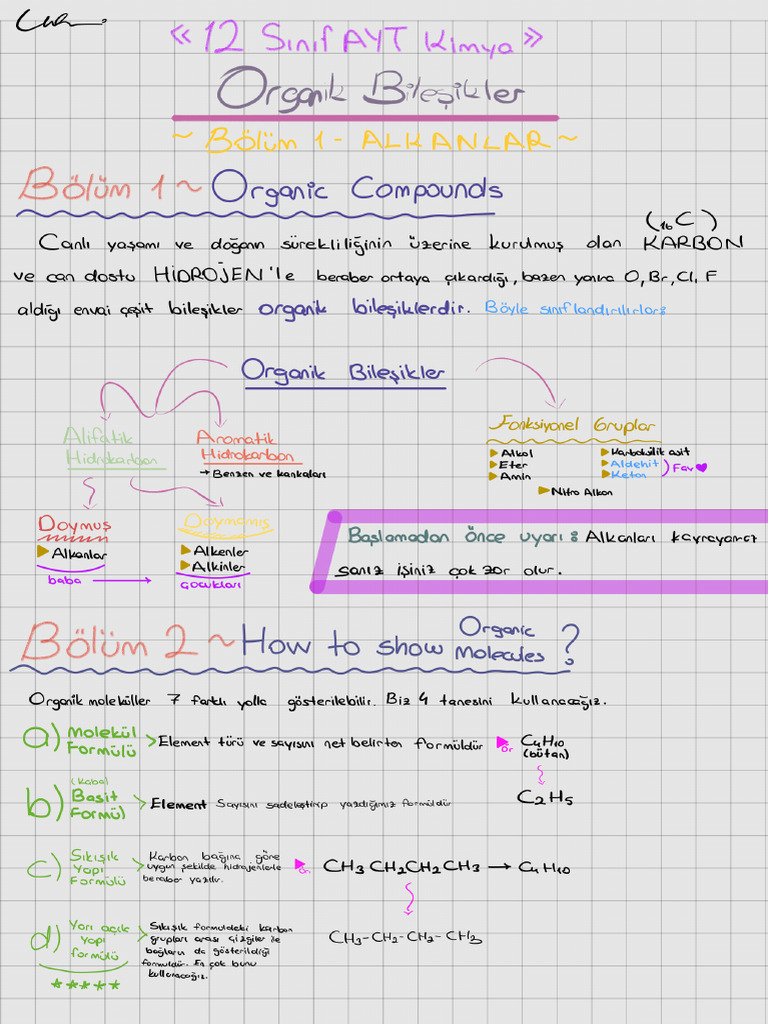 « 12 Sınıf AYT Kimya »
Organik Bileşikler
~ Bölüm 1 - ALKANLAR ~
Bölüm 1 ~ Organic Compounds
(₁₆C)
Canlı yaşamı ve doğanın sürekliliğinin üzerine kurulmuş olan KARBON
ve can dostu HİDROJEN'le beraber ortaya çıkardığı, bazen yanına O, Br, Cl, F
aldığı envai çeşit bileşikler organik bileşiklerdir. Böyle sınıflandırılırlar:
Organik Bileşikler
Alifatik
Hidrokarbon
Aromatik
Hidrokarbon
→ Benzen ve kankaları
Fonksiyonel Gruplar
Alkol
Eter
Amin
Karboksilik asit
Aldehit
Keton
) Fav ♥
Nitro Alkan
Doymuş
Alkanlar
baba →
Doymamış
Alkenler
Alkinler
çocukları
Başlamadan önce uyarı: Alkanları kavrayamaz
sanız işiniz çok zor olur.
Bölüm 2 ~ How to show Organic Molecules?
Organik moleküller 7 farklı yolla gösterilebilir. Biz 4 tanesini kullanacağız.
a) Molekül Formülü > Element türü ve sayısını net belirten formüldür ▶ Ör C₄H₁₀ (bütan)
b) (Kaba) Basit Formül > Element Sayısını sadeleştirip yazdığımız formüldür
C₂H₅
c) Sıkışık Yapı Formülü > Karbon bağına göre
uygun şekilde hidrojenlerle
beraber yazılır.
▶ Ör CH₃CH₂CH₂CH₃ → C₄H₁₀
d) Yarı açık yapı formülü > Sıkışık formüldeki karbon
grupları arası çizgiler ile
bağların da gösterildiği
formüldür. En çok bunu
kullanacağız.
CH₃-CH₂-CH₂-CH₃
*****